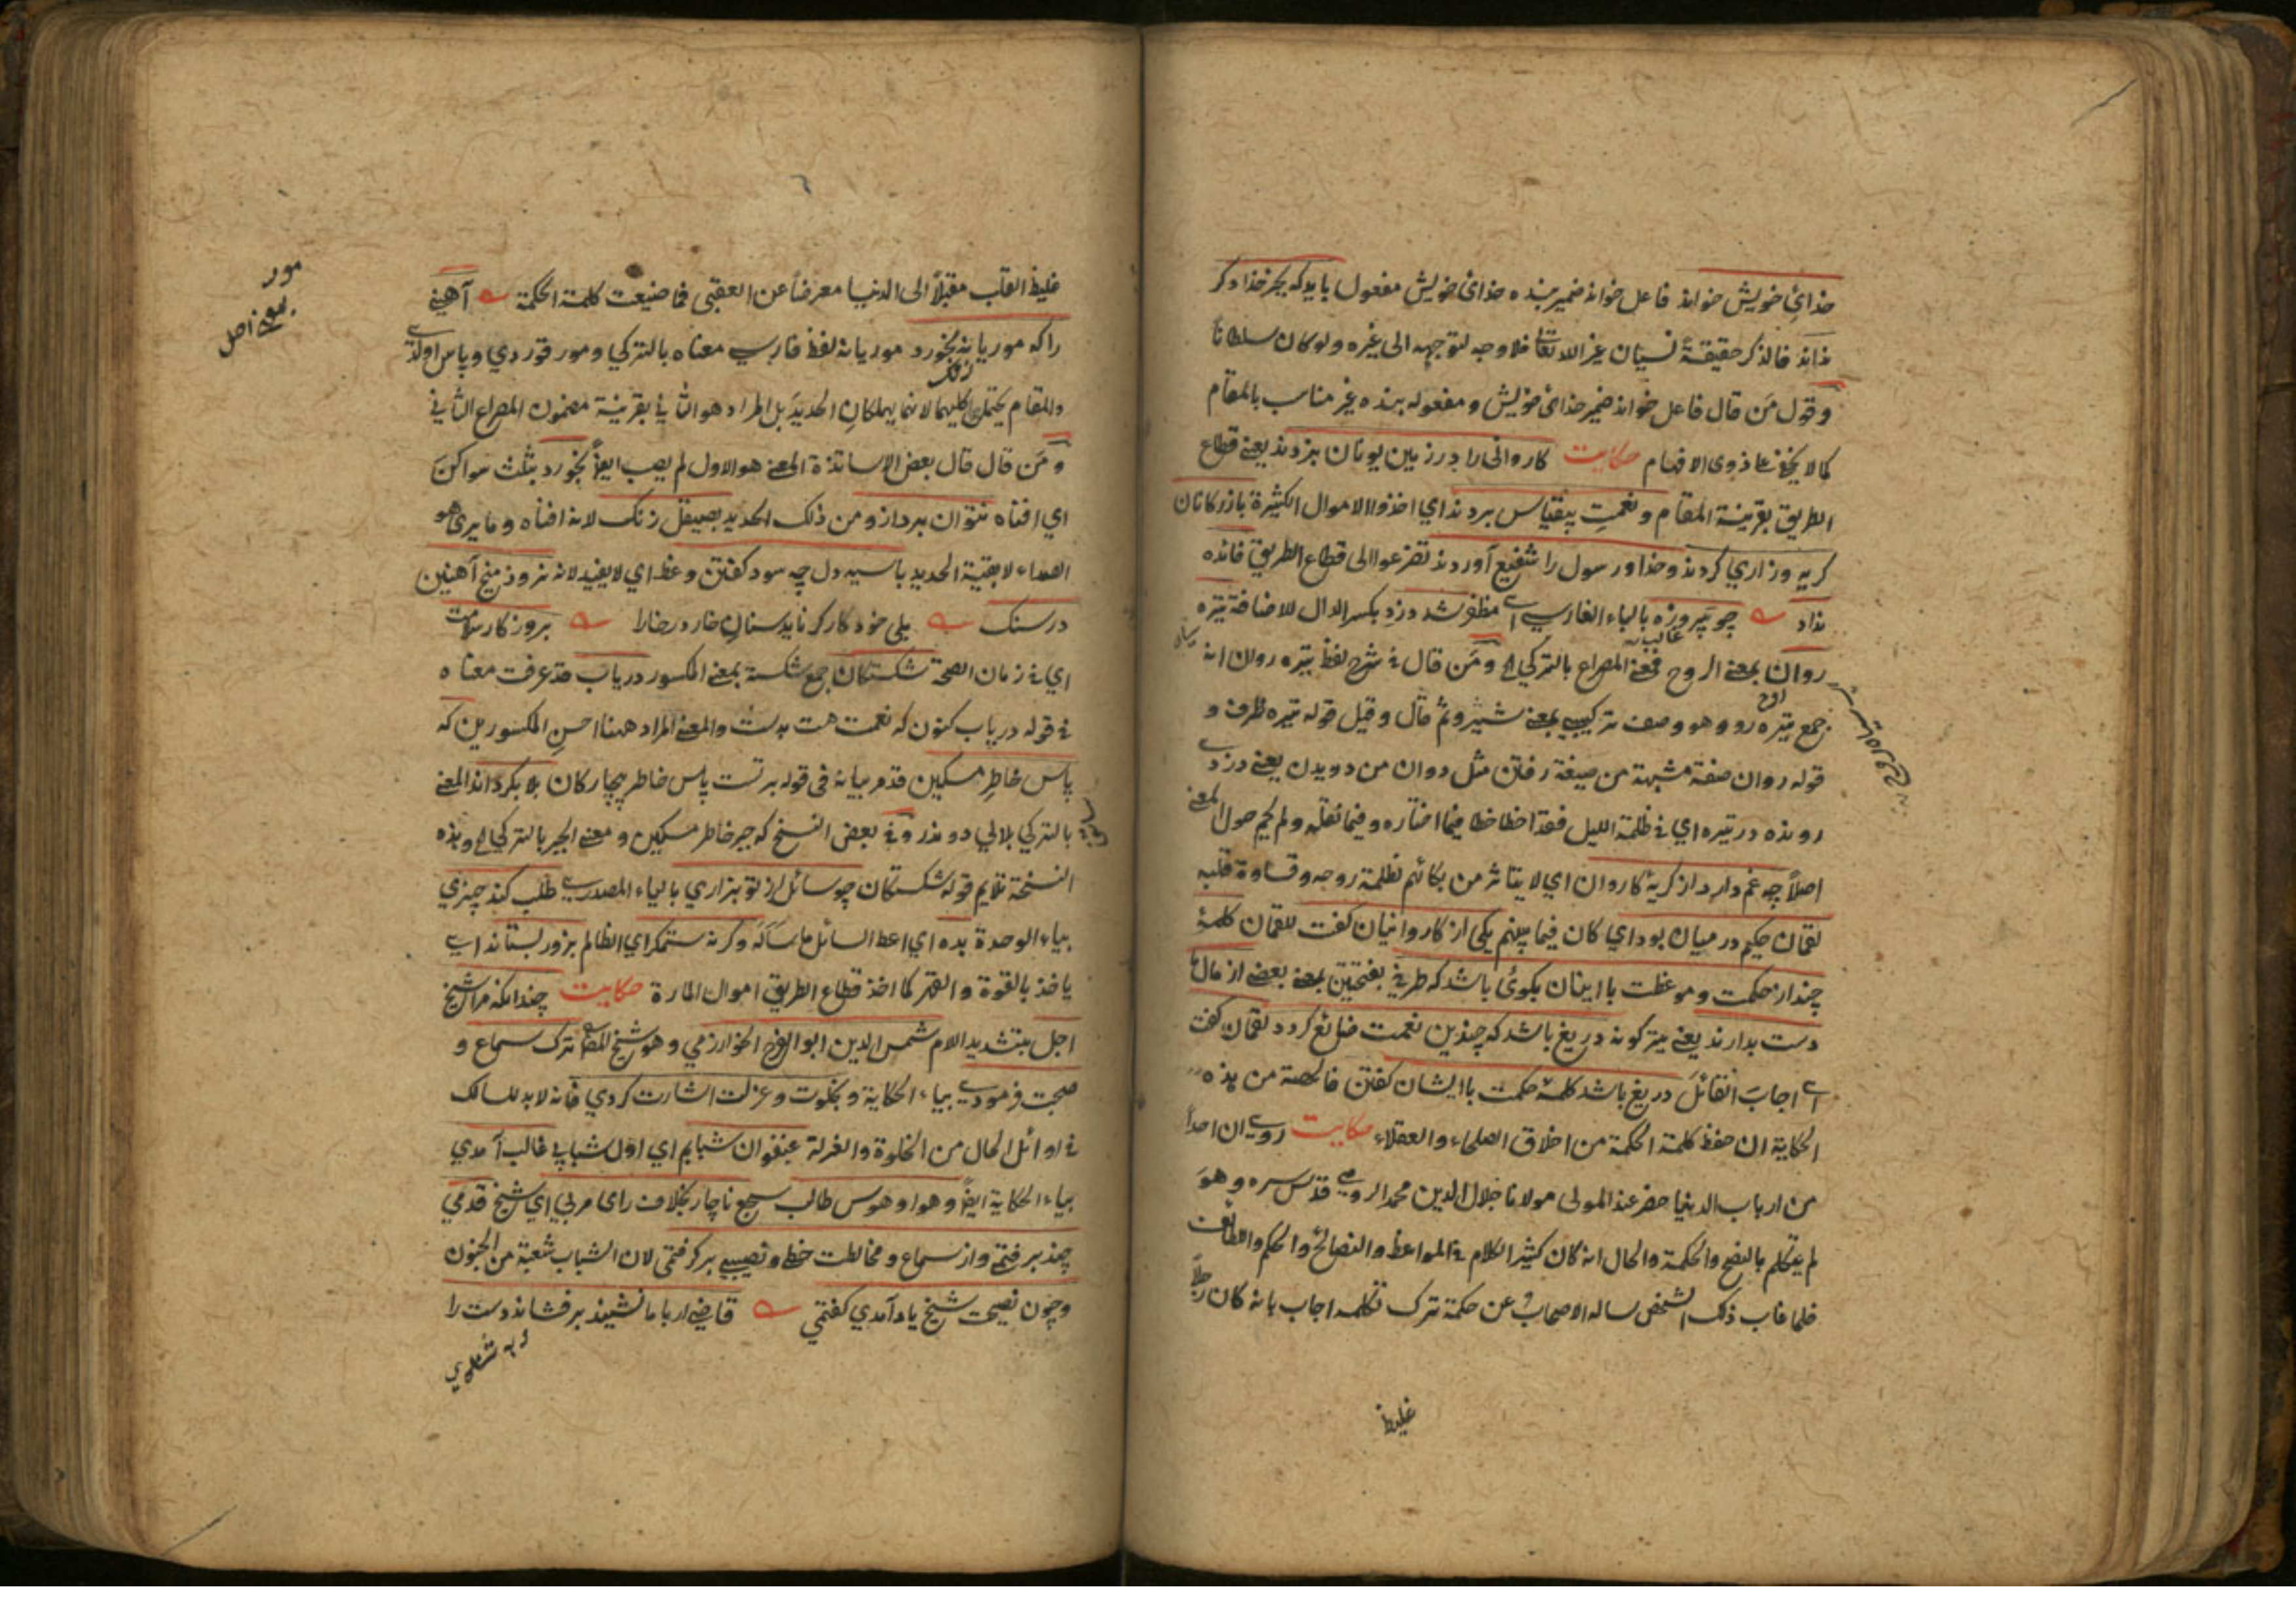 خدائ خویش خواند فاعل خواند ضمیر بنده خدائ خویش مفعول باید که بجز خدا ذکر
نداند فالذكر حقيقة نسيان غير الله تعالى فلا وجه لتوجهه الى غيره ولو كان سلطانا
وقول من قال فاعل خواند ضمیر خدائ خویش ومفعوله بنده غير مناسب بالمقام
كما لا يخفى على ذوى الافهام حكايت كاروانى را در زمین یونان بزدند یعنی قطاع
الطريق بقرينة المقام ونعمت بیقیاس بردند اي اخذوا الاموال الكثيرة بازركانان
كریه وزاري كردند وخدا ورسول را شفیع آوردند تضرعوا الى قطاع الطريق فائده
نداد چو پیروزه بالباء الفارسی ای مظفر شد دزد بكسر الدال للاضافة تیره
روان بمعنى الروح فمعنى المصراع بالتركي ومن قال في شرح لفظ تیره روان انه
جمع تیره رو وهو وصف تركيبي بمعنى وقيل قوله تیره ظرف و
قوله روان صفة مشبهة من صيغة رفتن مثل دوان من دویدن یعنی دزد
رونده در تیره اي في ظلمة الليل فقد اخطأ خطأ فيما اختاره وفيما نقله ولم يحم حول المعنى
اصلاً چه غم دارد از كریه كاروان اي لا يتأثر من بكائهم لظلمة روحه وقساوة قلبه
لقمان حكيم در میان بود اي كان فيما بينهم یكی از كاروانیان كفت لقمان كلمه
چند از حكمت وموعظت با اینان بكوئ باشد كه طرفی بفتحتين بمعنى بعضی از مال ما
دست بدارند یعنی دریغ باشد كه چندین نعمت ضائع كردد لقمان كفت
ای اجاب القائل دریغ باشد كلمه حكمت با ایشان كفتن فالحصة من هذه
الحكاية ان حفظ كلمة الحكمة من اخلاق الصلحاء والعقلاء حكايت روی ان احداً
من ارباب الدنيا حضر عند المولى مولانا جلال الدين محمد الرومي قدس سره وهو
لم يتكلم بالنصح والحكمة والحال انه كان كثير الكلام في المواعظ والنصائح والحكم واللطائف
فلما غاب ذلك الشخص ساله الاصحاب عن حكمة ترك تكلمه اجاب بانه كان رجلاً
غليظ
غليظ القلب مقبلاً الى الدنيا معرضاً عن العقبى فما ضيعت كلمة الحكمة آهنی
را كه موریانه بخورد موریانه لفظ فارسی معناه بالتركي ومور قوردي وپاس اولدی
والمقام يحتمل كليهما لانهما يهلكان الحديد بل المراد هو الثاني بقرينة مضمون المصراع الثاني
ومن قال قال بعض الاساتذة المعنى هو الاول لم يصب ايضاً بخورد بثلث سواكن
اي افناه نتوان برد ازو من ذلك الحديد بصیقل زنك لانه افناه وما يرى هو
الصداء لا بقية الحديد با سیه دل چه سود كفتن وعظ اي لا يفيد لانه نرود میخ آهنین
در سنك بروزكار سلامت
اي في زمان الصحة شكستكان جمع شكسته بمعنى المكسور دریاب قد عرفت معناه
في قوله دریاب كنون كه نعمت هست بدست والمعنى المراد ههنا احسن المكسورين كه
پاس خاطر مسكین قد مر بيانه فى قوله برتست پاس خاطر بیچاركان بلا بكرداند المعنى
بالتركي بلالي دوندرو وفي بعض النسخ كه جبر خاطر مسكین ومعنى الجبر بالتركي وهذه
النسخة تلايم قوله شكستكان چو سائل از تو بزاري بالياء المصدری طلب كند چیزي
بياء الوحدة بده اي اعط السائل ما سأله وكرنه ستمكر اي الظالم بزور بستاند ای
ياخذ بالقوة والقهر كما اخذ قطاع الطريق اموال المارة حكايت چندانكه مرا شیخ
اجل بتشديد اللام شمس الدين ابو الفرج الخوارزمي وهو شيخ المص ترك سماع و
صحبت فرمودی بياء الحكاية وبخلوت وعزلت اشارت كردي فانه لا بد للسالك
في اوائل الحال من الخلوة والعزلة عنفوان شبابم اي اول شبابی غالب آمدي
بياء الحكاية ايضاً وهوا وهوس طالب سجع ناچار بخلاف رای مربی اي شیخ قدمی
چند برفتمی واز سماع ومخالطت حظی ونصیبی بركرفتمی لان الشباب شعبة من الجنون
وچون نصیحت شیخ یاد آمدي كفتمی قاضی ار با ما نشیند برفشاند دست را